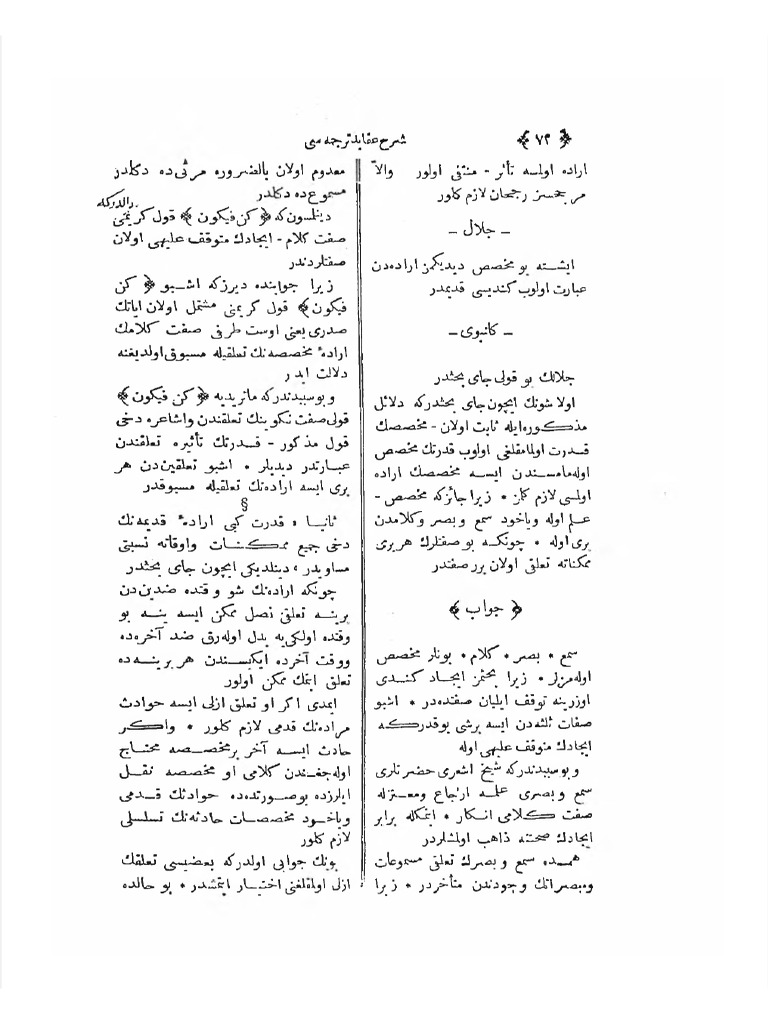 ﴿ ٧٢ ﴾ شرح عقايد ترجمه سى
اراده اولسه تأثر - منتفى اولور والاّ
مرجحسز رجحان لازم كلور
- جلال -
ايشته بو مخصص ديديكمز اراده دن
عبارت اولوب كنديسى قديمدر
- كلنبوى -
جلالك بو قولى جاى بحثدر
اولا شونك ايچون جاى بحثدركه دلائل
مذكوره ايله ثابت اولان - مخصصك
قدرت اولمامقلغى اولوب قدرتك مخصص
اوله مامسندن ايسه مخصصك اراده
اولمسى لازم كلمز • زيرا جائزكه مخصص -
علم اوله وياخود سمع و بصر وكلامدن
برى اوله • چونكه بو صفتلرك هربرى
ممكناته تعلق اولان برر صفتدر
﴿ جواب ﴾
سمع • بصر • كلام • بونلر مخصص
اوله مزلر • زيرا بحثمز ايجاد كندى
اوزرينه توقف ايليان صفتده در • اشبو
صفات ثلثه دن ايسه برشى يوقدركه
ايجادك متوقف عليهى اوله
وبوسببدندركه شيخ اشعرى حضرتلرى
سمع و بصرى علمه ارجاع ومعتزله
صفت كلامى انكار • ايتمكله برابر
ايجادك صحتنه ذاهب اولمشلردر
همده سمع و بصرك تعلق مسموعات
ومبصراتك وجودندن متأخردر • زيرا
معدوم اولان بالضروره مرئى ده دكلدر
مسموع ده دكلدر
دينلسون كه ﴿ كن فيكون ﴾ قول كريمنى
صفت كلام - ايجادك متوقف عليهى اولان
صفتلردندر
زيرا جوابنده ديرزكه اشبو ﴿ كن
فيكون ﴾ قول كريمنى مشتمل اولان اياتك
صدرى يعنى اوست طرفى صفت كلامك
ارادهٔ مخصصه نك تعلقيله مسبوق اولديغنه
دلالت ايدر
وبوسببدندركه ماتريديه ﴿ كن فيكون ﴾
قولى صفت تكوينك تعلقندن واشاعره دخى
قول مذكور - قدرتك تأثيره تعلقندن
عبارتدر ديديلر • اشبو تعلقين دن هر
برى ايسه اراده نك تعلقيله مسبوقدر
§
ثانيا • قدرت كبى ارادهٔ قديمه نك
دخى جميع ممكنات واوقاته نسبتى
مساويدر • دينلديكى ايچون جاى بحثدر
چونكه اراده نك شو وقتده ضدين دن
برينه تعلق نصل ممكن ايسه ينه بو
وقتده اولكى يه بدل اوله رق ضد آخره ده
ووقت آخرده ايكيسندن هر برينه ده
تعلق ايتمك ممكن اولور
ايمدى اكر او تعلق ازلى ايسه حوادث
مراده نك قدمى لازم كلور • واكر
حادث ايسه آخر برمخصصه محتاج
اوله جغندن كلامى او مخصصه نقل
ايلرزده بوصورتده ده حوادثك قدمى
وياخود مخصصات حادثه نك تسلسلى
لازم كلور
بونك جوابى اولدركه بعضيسى تعلقك
ازلى اولمقلغنى اختيار ايتمشدر • بو حالده